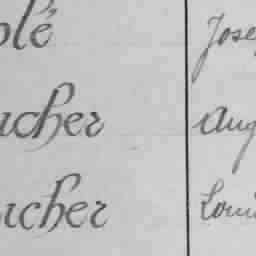 olé Jose
ucher Aug
ucher Loui